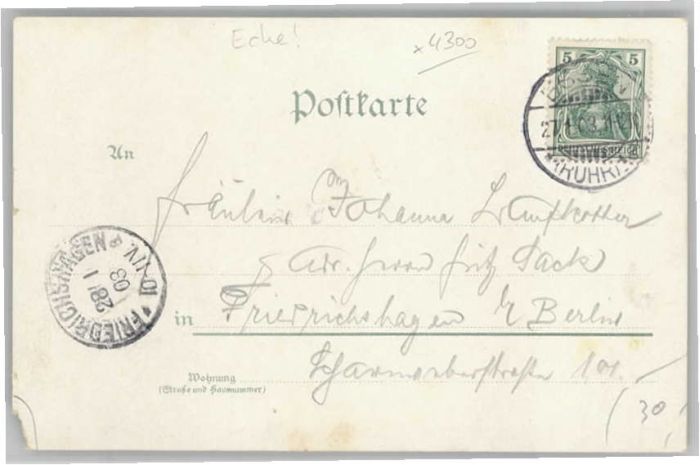 Ecke!
x 4300
5 5
Postkarte
(RUHR)
An
Fräulein Johanna
FRIEDRICHSHAGEN
28/1 03
10-11V.
p. Adr. Herrn Fritz Sack
in Friedrichshagen b/ Berlin
Wohnung
(Straße und Hausnummer)
Scharnweberstraße 101.
(30)